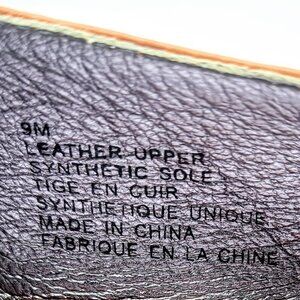 9M
LEATHER UPPER
SYNTHETIC SOLE
TIGE EN CUIR
SYNTHETIQUE UNIQUE
MADE IN CHINA
FABRIQUE EN LA CHINE